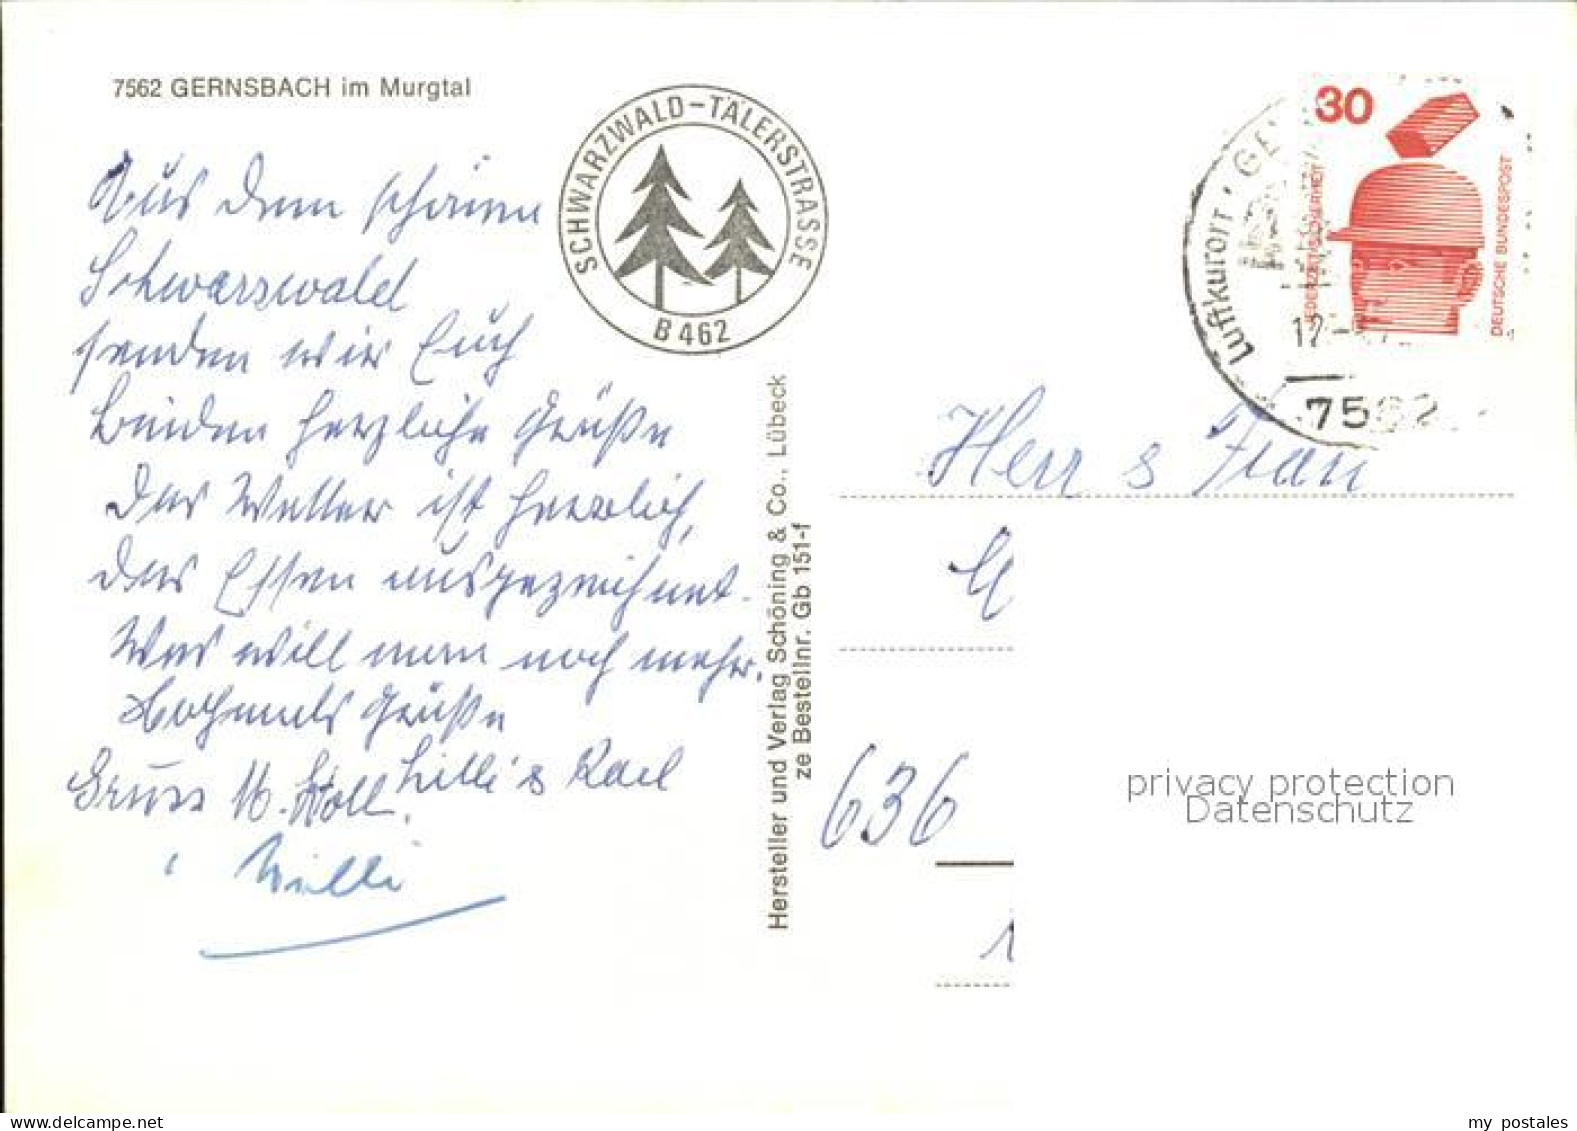 7562 GERNSBACH im Murgtal
SCHWARZWALD-TÄLERSTRASSE
B 462
Aus dem schönen
Schwarzwald
senden wir Euch
beiden herzliche Grüße
Das Wetter ist herrlich,
das Essen ausgezeichnet.
Was will man noch mehr.
Grüße
Lilli & Karl
Gruss M. Holl.
Willi
Hersteller und Verlag Schöning & Co., Lübeck
ze Bestellnr. Gb 151-f
30
JEDERZEIT SICHERHEIT
DEUTSCHE BUNDESPOST
Luftkurort · GE
12-
7562
Herr & Frau
636
privacy protection
Datenschutz
my postales